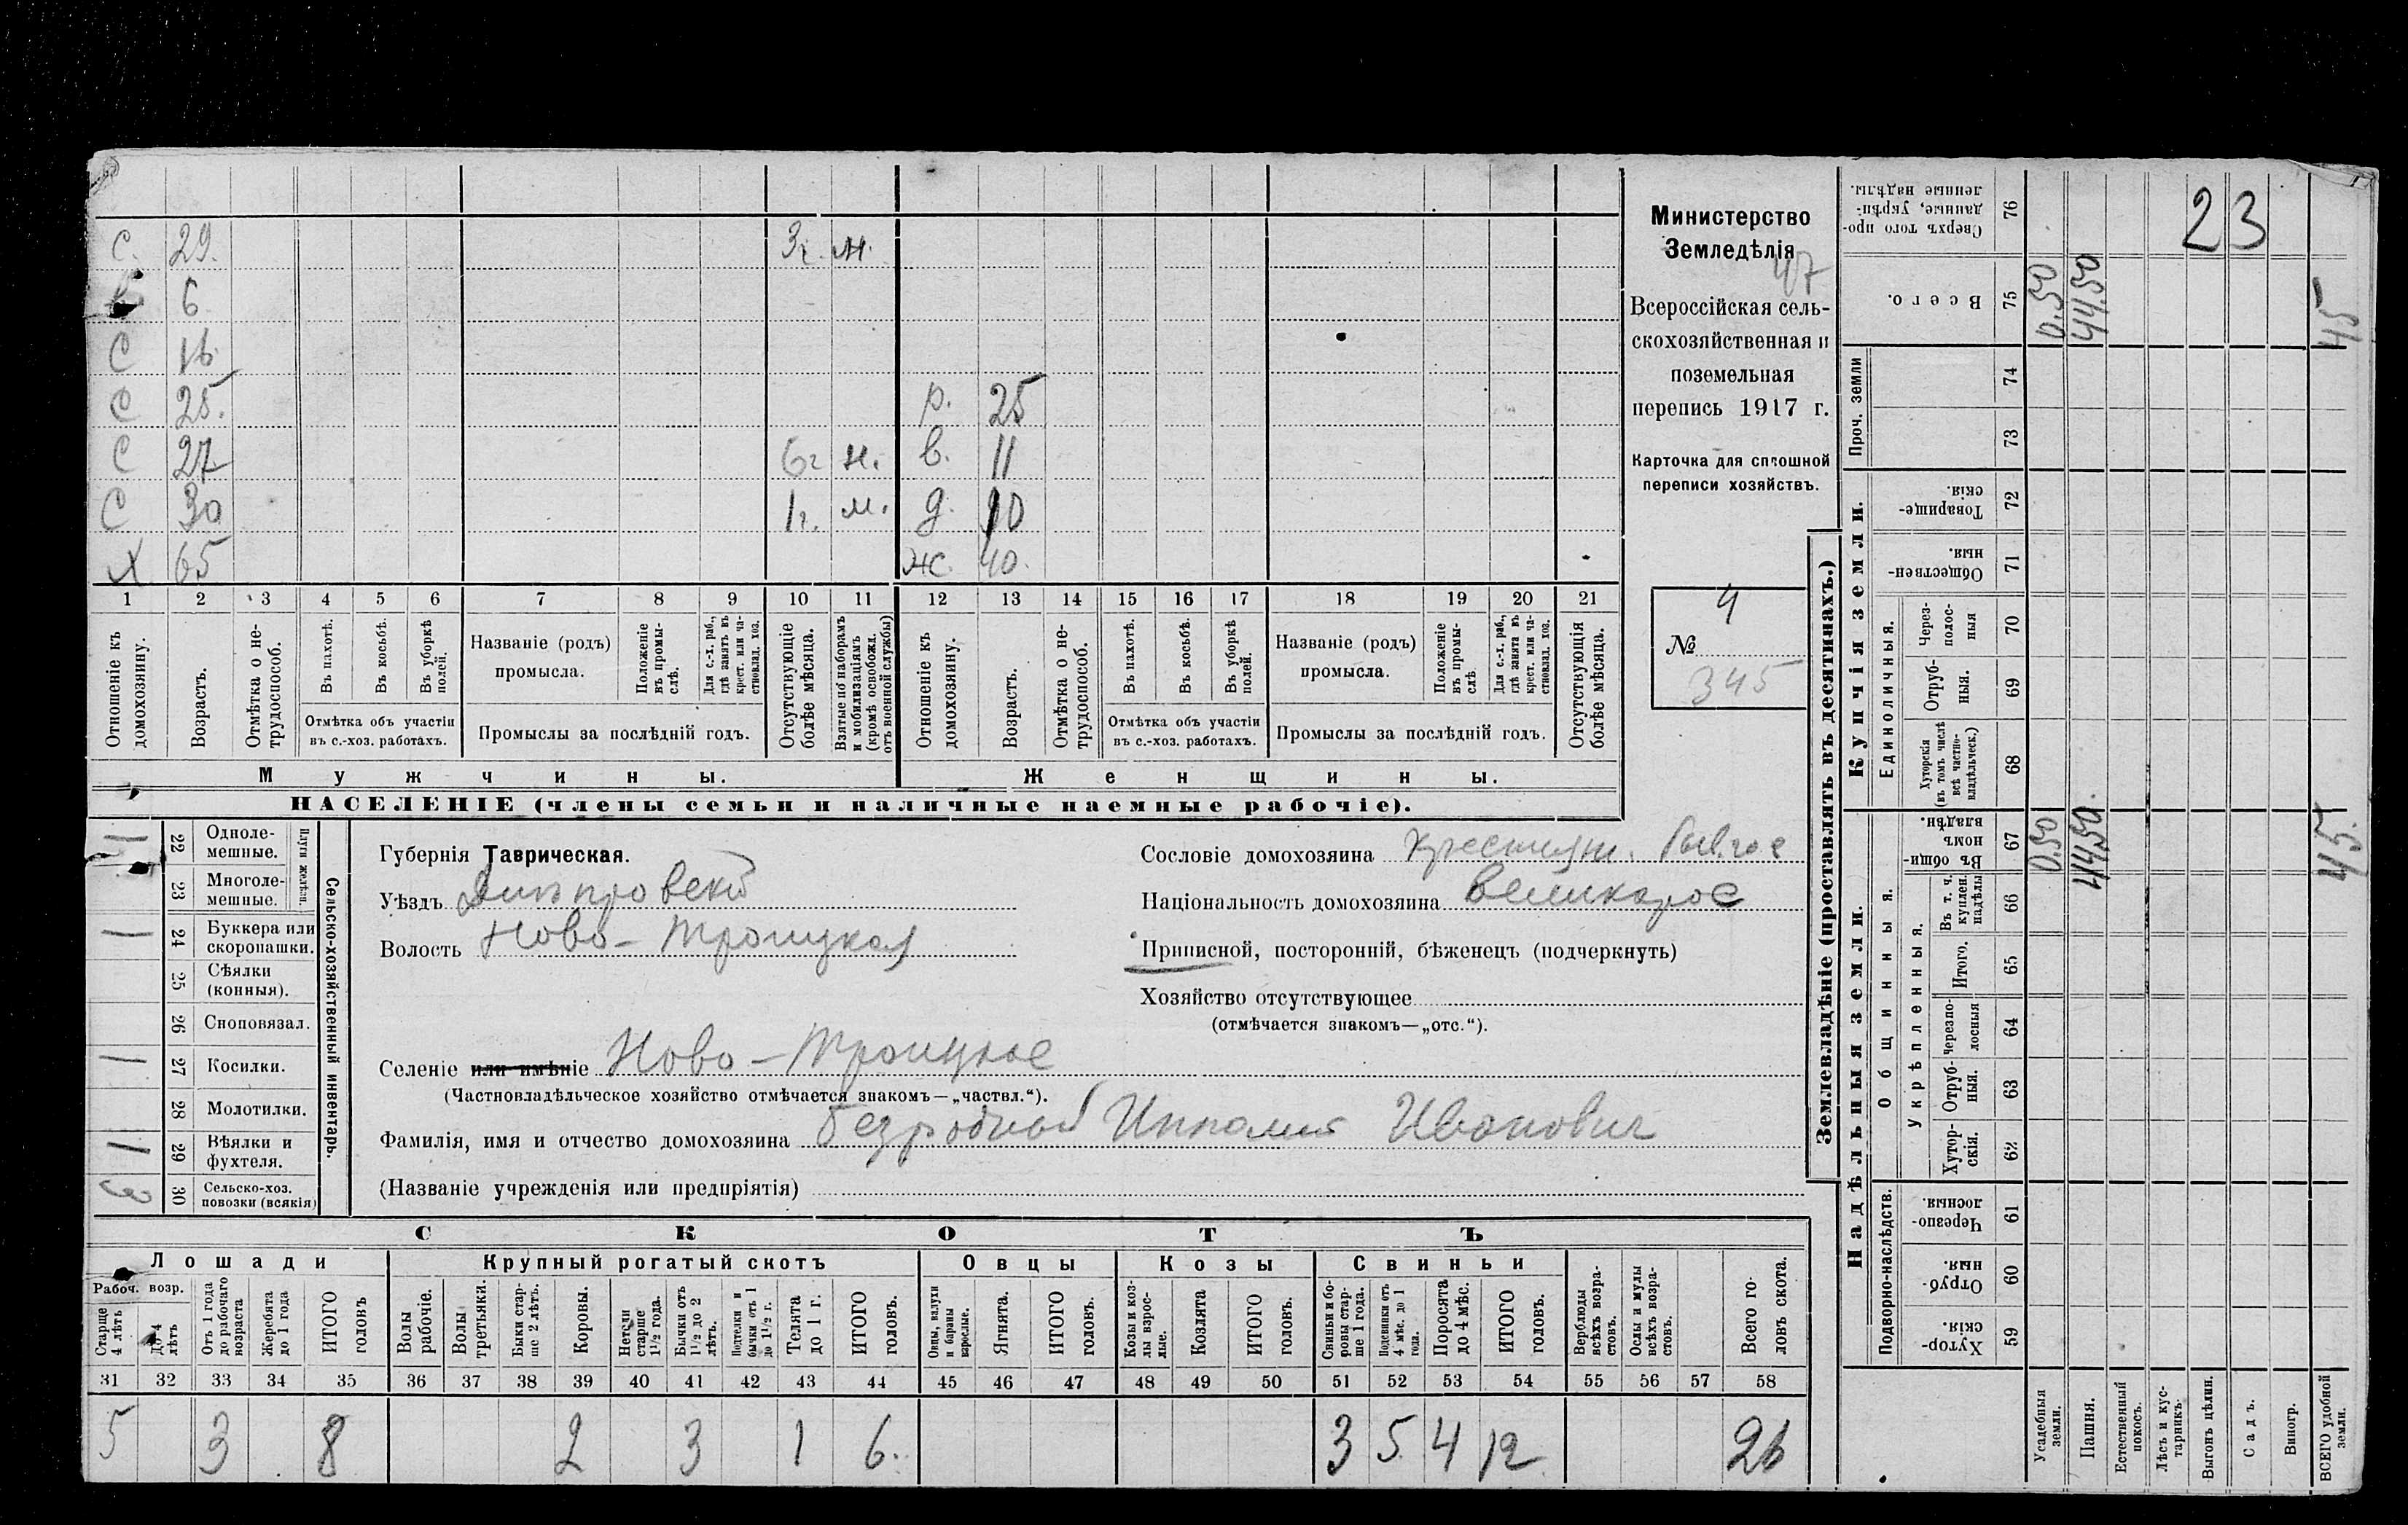 С. 29. 3г. м.
6
С 16
С 25. р. 25
С 27 6г н. в. 11
С 30 1г. м. д. 10
Х 65 ж. 40.
1 2 3 4 5 6 7 8 9 10 11 12 13 14 15 16 17 18 19 20 21
Отношеніе къ домохозяину.
Возрасть.
Отмѣтка о не-трудоспособ.
Въ пахотѣ.
Въ косьбѣ.
Въ уборкѣ полей.
Отмѣтка объ участіи
въ с.-хоз. работахъ.
Названіе (родъ)
промысла.
Положеніе въ промы-слѣ.
Для с.-х. раб., гдѣ занятъ въ крест. или ча-стновлад. хоз.
Промыслы за послѣдній годъ.
Отсутствующіе болѣе мѣсяца.
Взятые по наборамъ и мобилизаціямъ (кромѣ освобожд. отъ военной службы)
Отношеніе къ домохозяину.
Возрасть.
Отмѣтка о не-трудоспособ.
Въ пахотѣ.
Въ косьбѣ.
Въ уборкѣ полей.
Отмѣтка объ участіи
въ с.-хоз. работахъ.
Названіе (родъ)
промысла.
Положеніе въ промы-слѣ
Для с.-х. раб., гдѣ занята въ крест. или ча-стновлад. хоз.
Промыслы за послѣдній годъ.
Отсутствующія болѣе мѣсяца.
Мужчины.
Женщины.
НАСЕЛЕНІЕ (члены семьи и наличные наемные рабочіе).
Министерство
Земледѣлія
47
Всероссійская сель-
скохозяйственная и
поземельная
перепись 1917 г.
Карточка для сплошной
переписи хозяйствъ.
4
№
345
22 Одноле-мешные.
23 Многоле-мешные.
Плуги желѣзн.
1 24 Буккера или скоропашки.
25 Сѣялки (конныя).
26 Сноповязал.
1 27 Косилки.
28 Молотилки.
1 29 Вѣялки и фухтеля.
3 30 Сельско-хоз. повозки (всякія)
Сельско-хозяйственный инвентарь.
Губернія Таврическая.
Уѣздъ Днѣпровскій
Волость Ново-Троицкая
Селеніе или имѣніе Ново-Троицкое
(Частновладѣльческое хозяйство отмѣчается знакомъ—„частвл.“).
Фамилія, имя и отчество домохозяина Безродный Ипполит Иванович
(Названіе учрежденія или предпріятія)
Сословіе домохозяина крестьян.
Національность домохозяина Великорос
Приписной, посторонній, бѣженецъ (подчеркнуть)
Хозяйство отсутствующее
(отмѣчается знакомъ—„отс.“).
СКОТЪ
Лошади
Крупный рогатый скотъ
Овцы
Козы
Свиньи
Рабоч. возр.
Старше 4 лѣтъ
До 4 лѣтъ
Отъ 1 года до рабочаго возраста
Жеребята до 1 года
ИТОГО головъ
Волы рабочіе.
Волы третьяки.
Быки стар-ше 2 лѣтъ.
Коровы.
Нетели старше 1½ года.
Бычки отъ 1½ до 2 лѣтъ.
Подтелки и бычки отъ 1 до 1½ г.
Телята до 1 г.
ИТОГО головъ.
Овцы, валухи и бараны взрослые.
Ягнята.
ИТОГО головъ.
Козы и коз-лы взрос-лые.
Козлята
ИТОГО головъ.
Свиньи и бо-ровы стар-ше 1 года.
Подсвинки отъ 4 мѣс. до 1 года.
Поросята до 4 мѣс.
ИТОГО головъ.
Верблюды всѣхъ возра-стовъ.
Ослы и мулы всѣхъ возра-стовъ.
Всего го-ловъ скота.
31 32 33 34 35 36 37 38 39 40 41 42 43 44 45 46 47 48 49 50 51 52 53 54 55 56 57 58
5 3 8 2 3 1 6. 3 5 4 12 26
Землевладѣніе (проставлять въ десятинахъ.)
Надѣльныя земли.
Купчія земли.
Проч. земли
Подворно-наслѣдств.
Общинныя.
Укрѣпленныя.
Единоличныя.
Сверхъ того про-данные, укрѣп-ленные надѣлы. 76 23
Всего. 75 0.50 44.50 45
74
73
Товарище-скія. 72
Обществен-ныя. 71
Через-полос-ныя 70
Отруб-ныя. 69
Хуторскія (въ томъ числѣ всѣ частно-владѣльческ.) 68
Въ общи-номъ владѣн. 67 0.50 44.50 45.
Въ т. ч. куплен. надѣлы 66
Итого. 65
Черезпо-лосныя 64
Отруб-ныя. 63
Хутор-скія. 62
Черезпо-лосныя. 61
Отруб-ныя. 60
Хутор-скія. 59
Усадебныя земли.
Пашня.
Естественный покосъ.
Лѣсъ и кус-тарникъ.
Выгонъ цѣлин.
Садъ.
Виногр.
ВСЕГО удобной земли.